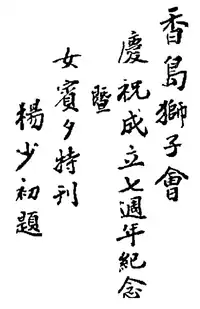 香島獅子會
慶祝成立七週年紀念
暨
女賓夕特刊
楊少初題